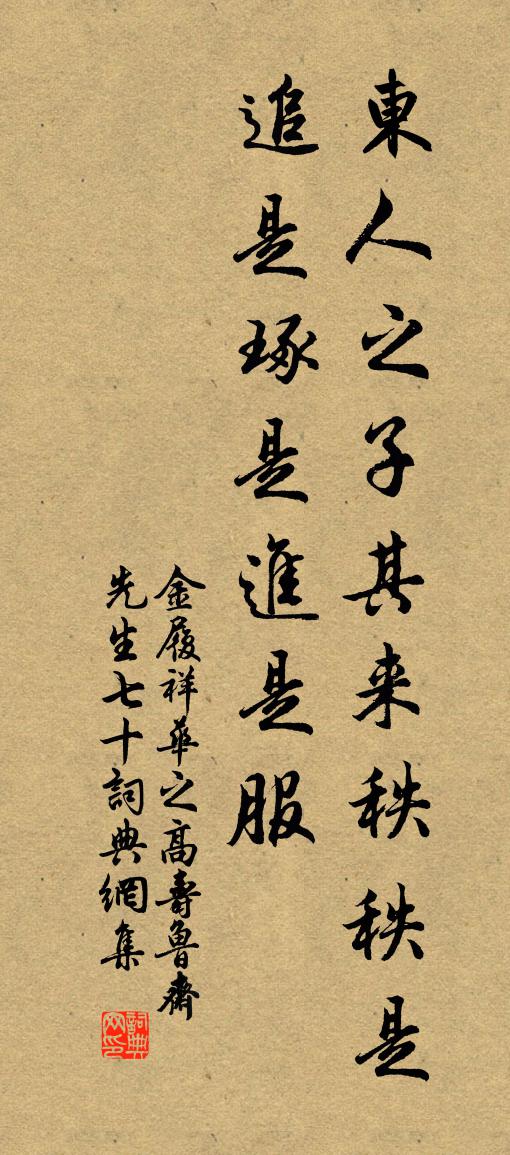 東人之子其来秩秩是
追是琢是進是服
金履祥華之高壽魯齋
先生七十詞典網集
詞典网印